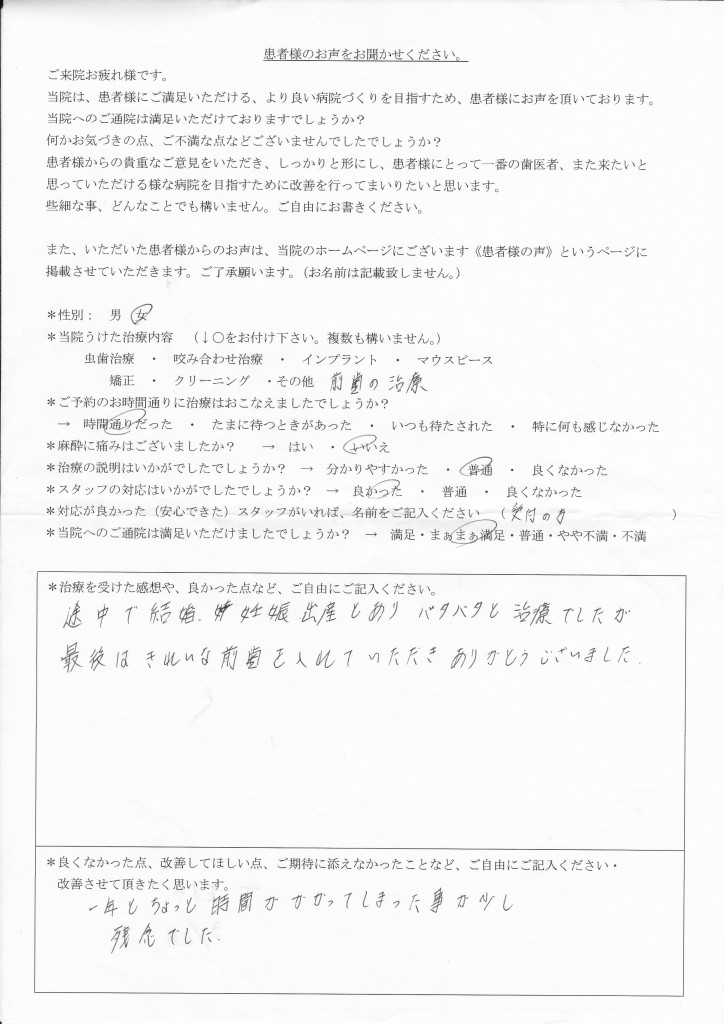 患者様のお声をお聞かせください。
ご来院お疲れ様です。
当院は、患者様にご満足いただける、より良い病院づくりを目指すため、患者様にお声を頂いております。
当院へのご通院は満足いただけておりますでしょうか？
何かお気づきの点、ご不満な点などございませんでしたでしょうか？
患者様からの貴重なご意見をいただき、しっかりと形にし、患者様にとって一番の歯医者、また来たいと
思っていただける様な病院を目指すために改善を行ってまいりたいと思います。
些細な事、どんなことでも構いません。ご自由にお書きください。
また、いただいた患者様からのお声は、当院のホームページにございます《患者様の声》というページに
掲載させていただきます。ご了承願います。（お名前は記載致しません。）
＊性別： 男 女
＊当院うけた治療内容 （↓〇をお付け下さい。複数も構いません。）
虫歯治療 ・ 咬み合わせ治療 ・ インプラント ・ マウスピース
矯正 ・ クリーニング ・その他 前歯の治療
＊ご予約のお時間通りに治療はおこなえましたでしょうか？
→ 時間通りだった ・ たまに待つときがあった ・ いつも待たされた ・ 特に何も感じなかった
＊麻酔に痛みはございましたか？ → はい ・ いいえ
＊治療の説明はいかがでしたでしょうか？ → 分かりやすかった ・ 普通 ・ 良くなかった
＊スタッフの対応はいかがでしたでしょうか？ → 良かった ・ 普通 ・ 良くなかった
＊対応が良かった（安心できた）スタッフがいれば、名前をご記入ください （受付の方 ）
＊当院へのご通院は満足いただけましたでしょうか？ → 満足・まぁまぁ満足・普通・やや不満・不満
＊治療を受けた感想や、良かった点など、ご自由にご記入ください。
途中で結婚、妊娠出産とあり バタバタと治療でしたが
最後はきれいな前歯を入れていただきありがとうございました.
＊良くなかった点、改善してほしい点、ご期待に添えなかったことなど、ご自由にご記入ください・
改善させて頂きたく思います。
一年とちょっと時間がかかってしまった事が少し
残念でした.